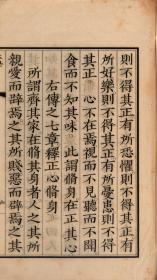 則不得其正有所恐懼則不得其正有
所好樂則不得其正有所憂患則不得
其正　心不在焉視而不見聽而不聞
食而不知其味　此謂脩身在正其心
右傳之七章釋正心脩身
所謂齊其家在脩其身者人之其所
親愛而辟焉之其所賤惡而辟焉之其